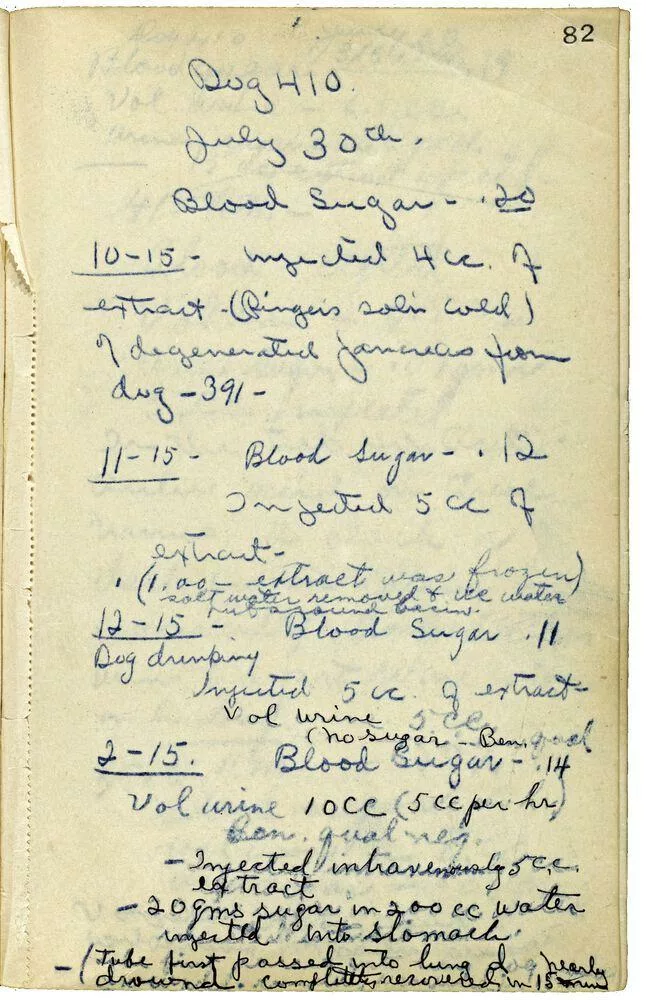 82
Dog 410.
July 30th.
Blood Sugar - .20
10-15 - Injected 4 cc. of
extract - (Ringers sol'n cold)
of degenerated pancreas from
dog - 391 -
11-15 - Blood Sugar - .12
Injected 5 cc of
extract -
(1.00 - extract was frozen)
salt water removed & ice water
put around basin.
12-15 - Blood Sugar .11
Dog drinking
Injected 5 cc. of extract -
Vol urine 5 cc.
(no sugar - Ben. qual
2-15. Blood Sugar - .14
Vol urine 10 CC (5 cc per hr)
Ben. qual neg.
- Injected intravenously 5 c.c.
extract
- 20 gms sugar in 200 cc water
injected into stomach.
- (tube first passed into lung dog nearly
drowned. completely recovered in 15 min